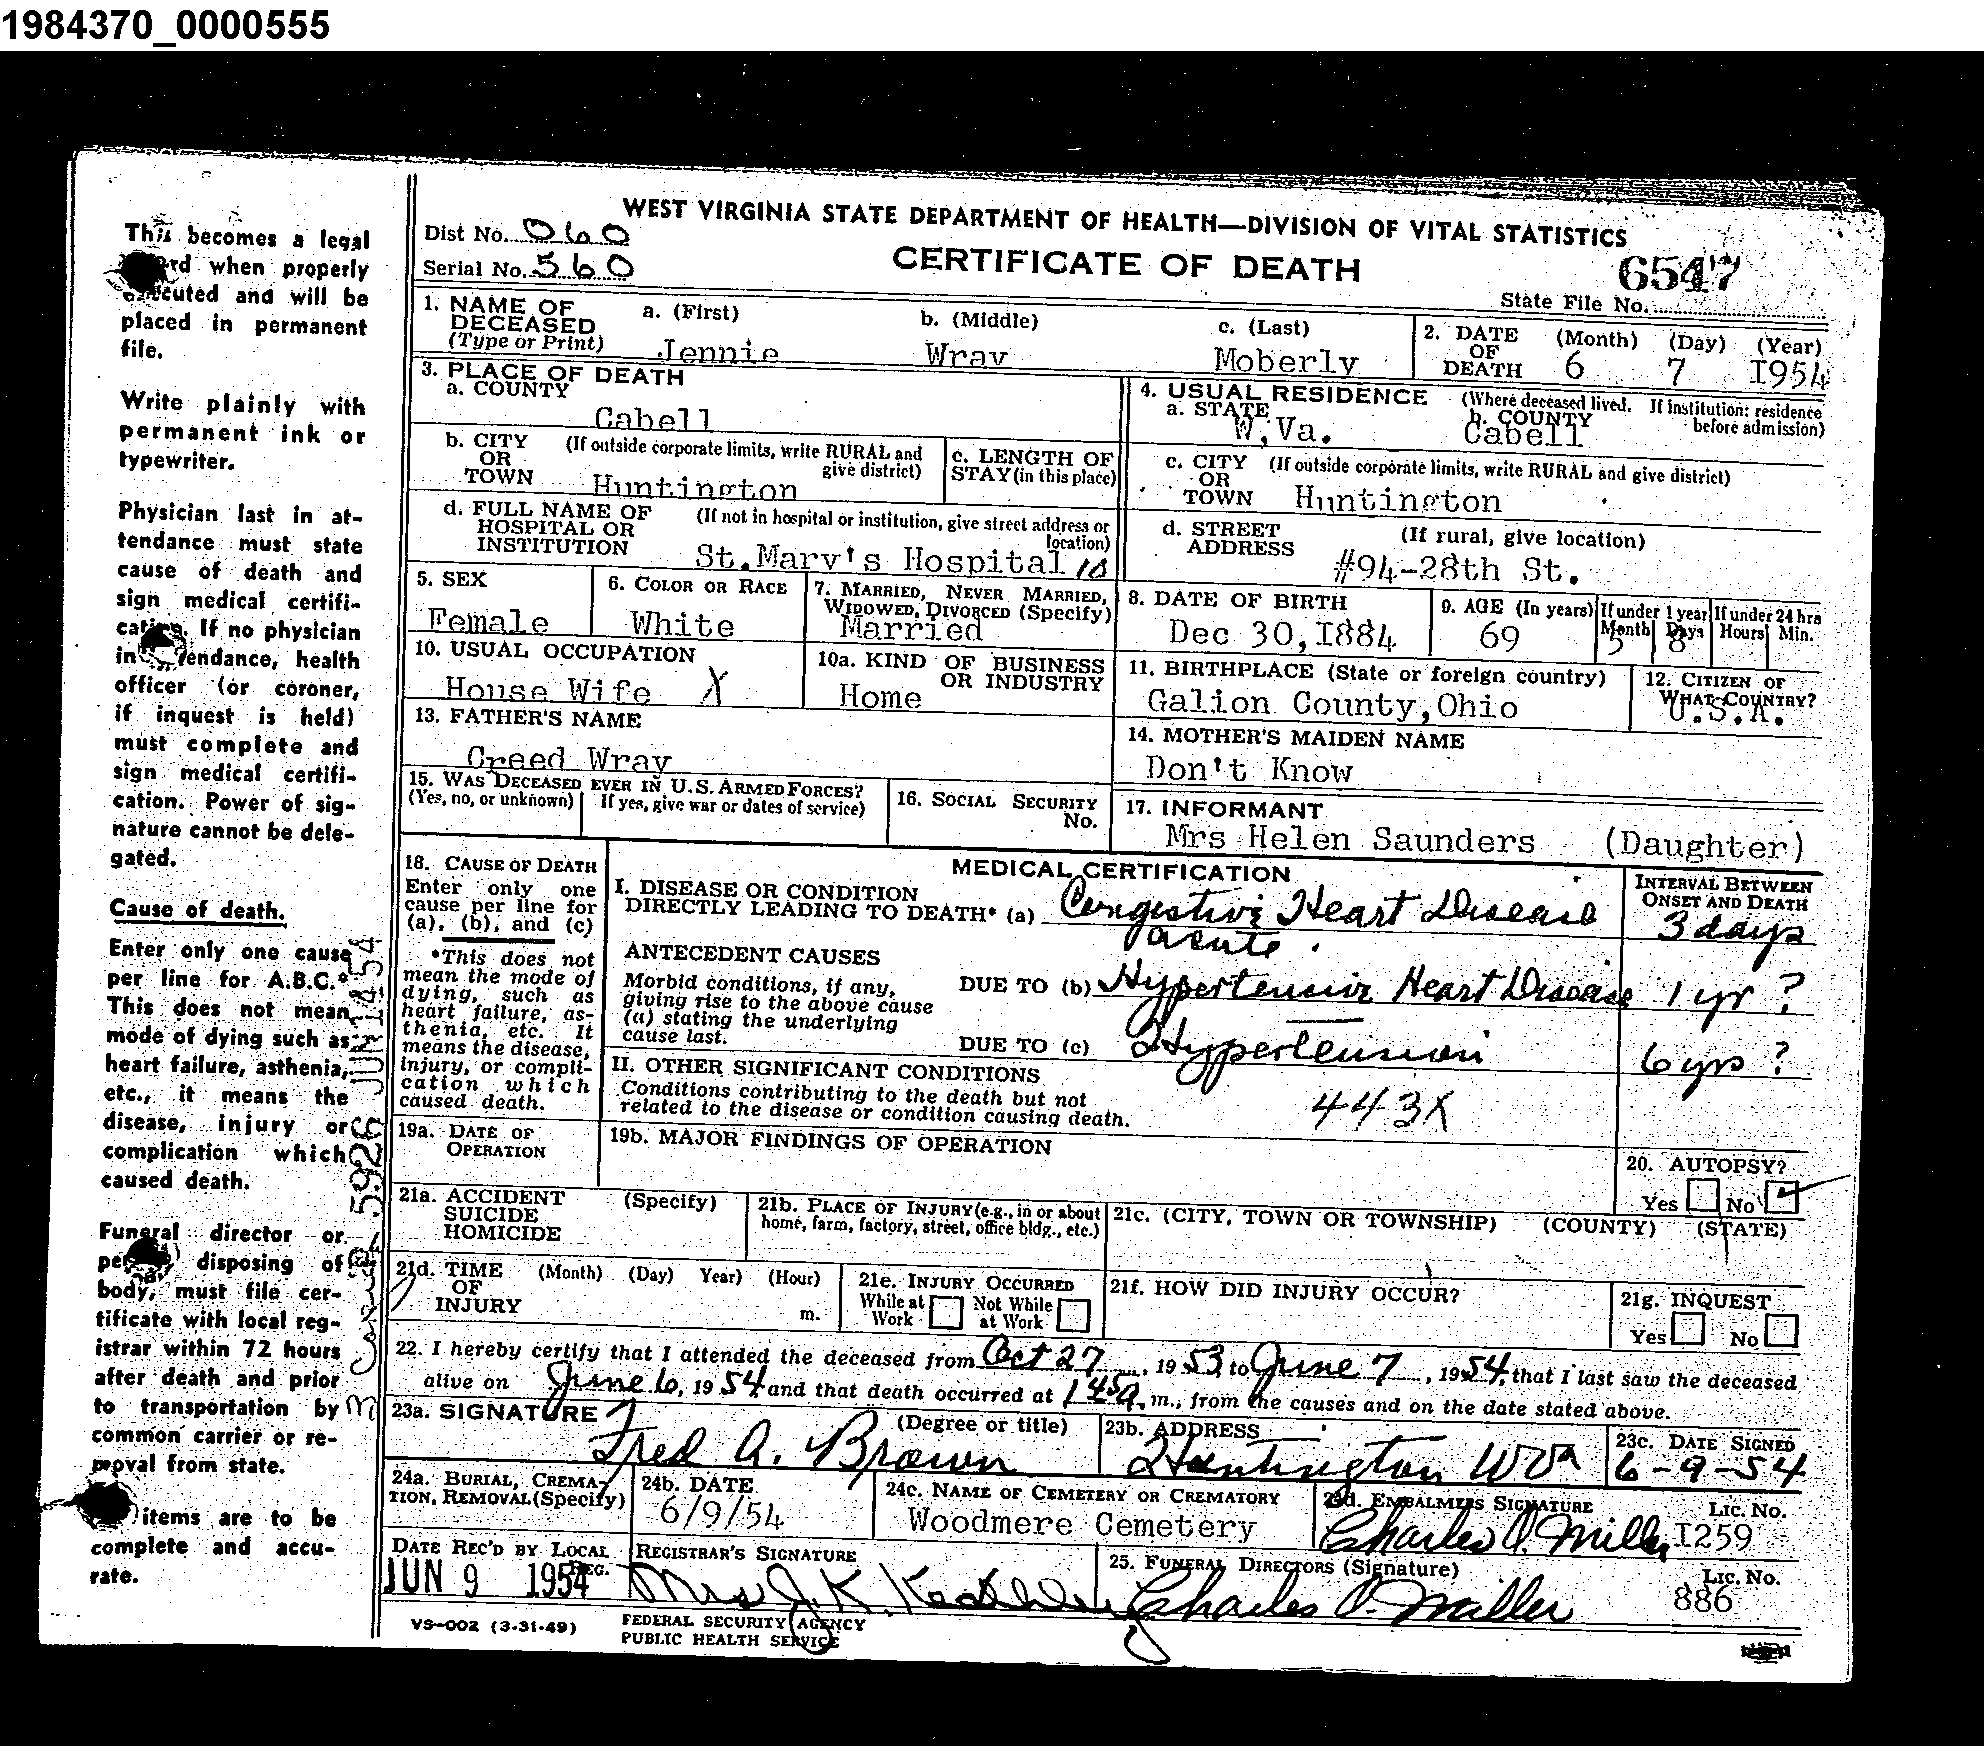 1984370_0000555
This becomes a legal
when properly
executed and will be
placed in permanent
file.
Write plainly with
permanent ink or
typewriter.
Physician last in at-
tendance must state
cause of death and
sign medical certifi-
cation. If no physician
in attendance, health
officer (or coroner,
if inquest is held)
must complete and
sign medical certifi-
cation. Power of sig-
nature cannot be dele-
gated.
Cause of death.
Enter only one cause
per line for A.B.C.*
This does not mean
mode of dying such as
heart failure, asthenia,
etc., it means the
disease, injury or
complication which
caused death.
Funeral director or
disposing of
body, must file cer-
tificate with local reg-
istrar within 72 hours
after death and prior
to transportation by
common carrier or re-
moval from state.
items are to be
complete and accu-
rate.
WEST VIRGINIA STATE DEPARTMENT OF HEALTH—DIVISION OF VITAL STATISTICS
Dist No. 060
Serial No. 560
CERTIFICATE OF DEATH
6547
State File No.
1. NAME OF DECEASED (Type or Print) a. (First) b. (Middle) c. (Last)
Jennie Wray Moberly
2. DATE OF DEATH (Month) (Day) (Year)
6 7 1954
3. PLACE OF DEATH
a. COUNTY
Cabell
b. CITY OR TOWN (If outside corporate limits, write RURAL and give district)
Huntington
c. LENGTH OF STAY (in this place)
d. FULL NAME OF HOSPITAL OR INSTITUTION (If not in hospital or institution, give street address or location)
St.Mary's Hospital 10
4. USUAL RESIDENCE (Where deceased lived. If institution: residence before admission)
a. STATE b. COUNTY
W.Va. Cabell
c. CITY OR TOWN (If outside corporate limits, write RURAL and give district)
Huntington
d. STREET ADDRESS (If rural, give location)
#94-28th St.
5. SEX
Female
6. COLOR OR RACE
White
7. MARRIED, NEVER MARRIED, WIDOWED, DIVORCED (Specify)
Married
8. DATE OF BIRTH
Dec 30,1884
9. AGE (In years) If under 1 year If under 24 hrs
Month Days Hours Min.
69 5 8
10. USUAL OCCUPATION
House Wife X
10a. KIND OF BUSINESS OR INDUSTRY
Home
11. BIRTHPLACE (State or foreign country)
Galion County,Ohio
12. CITIZEN OF WHAT COUNTRY?
U.S.A.
13. FATHER'S NAME
Creed Wray
14. MOTHER'S MAIDEN NAME
Don't Know
15. WAS DECEASED EVER IN U.S. ARMED FORCES?
(Yes, no, or unknown) If yes, give war or dates of service)
16. SOCIAL SECURITY No.
17. INFORMANT
Mrs Helen Saunders (Daughter)
18. CAUSE OF DEATH
Enter only one
cause per line for
(a), (b), and (c)
*This does not
mean the mode of
dying, such as
heart failure, as-
thenia, etc. It
means the disease,
injury, or compli-
cation which
caused death.
MEDICAL CERTIFICATION
I. DISEASE OR CONDITION
DIRECTLY LEADING TO DEATH* (a) Congestive Heart Disease
acute.
ANTECEDENT CAUSES
Morbid conditions, if any,
giving rise to the above cause
(a) stating the underlying
cause last.
DUE TO (b) Hypertensive Heart Disease
DUE TO (c) Hypertension
INTERVAL BETWEEN ONSET AND DEATH
3 days
1 yr ?
6 yrs ?
II. OTHER SIGNIFICANT CONDITIONS
Conditions contributing to the death but not
related to the disease or condition causing death.
443X
19a. DATE OF OPERATION
19b. MAJOR FINDINGS OF OPERATION
20. AUTOPSY?
Yes No
21a. ACCIDENT SUICIDE HOMICIDE (Specify)
21b. PLACE OF INJURY (e.g., in or about home, farm, factory, street, office bldg., etc.)
21c. (CITY, TOWN OR TOWNSHIP) (COUNTY) (STATE)
21d. TIME OF INJURY (Month) (Day) Year) (Hour) m.
21e. INJURY OCCURRED
While at Work Not While at Work
21f. HOW DID INJURY OCCUR?
21g. INQUEST
Yes No
22. I hereby certify that I attended the deceased from Oct 27, 1953, to June 7, 1954, that I last saw the deceased
alive on June 6, 1954 and that death occurred at 1 45a. m., from the causes and on the date stated above.
23a. SIGNATURE (Degree or title)
Fred A. Brown
23b. ADDRESS
Huntington WVa
23c. DATE SIGNED
6-9-54
24a. BURIAL, CREMA-
TION, REMOVAL (Specify)
24b. DATE
6/9/54
24c. NAME OF CEMETERY OR CREMATORY
Woodmere Cemetery
24d. EMBALMERS SIGNATURE Lic. No.
Charles O. Miller 1259
DATE REC'D BY LOCAL REG.
JUN 9 1954
REGISTRAR'S SIGNATURE
Mrs J. K.
25. FUNERAL DIRECTORS (Signature) Lic. No.
Charles O. Miller 886
VS-002 (3-31-49)
FEDERAL SECURITY AGENCY
PUBLIC HEALTH SERVICE